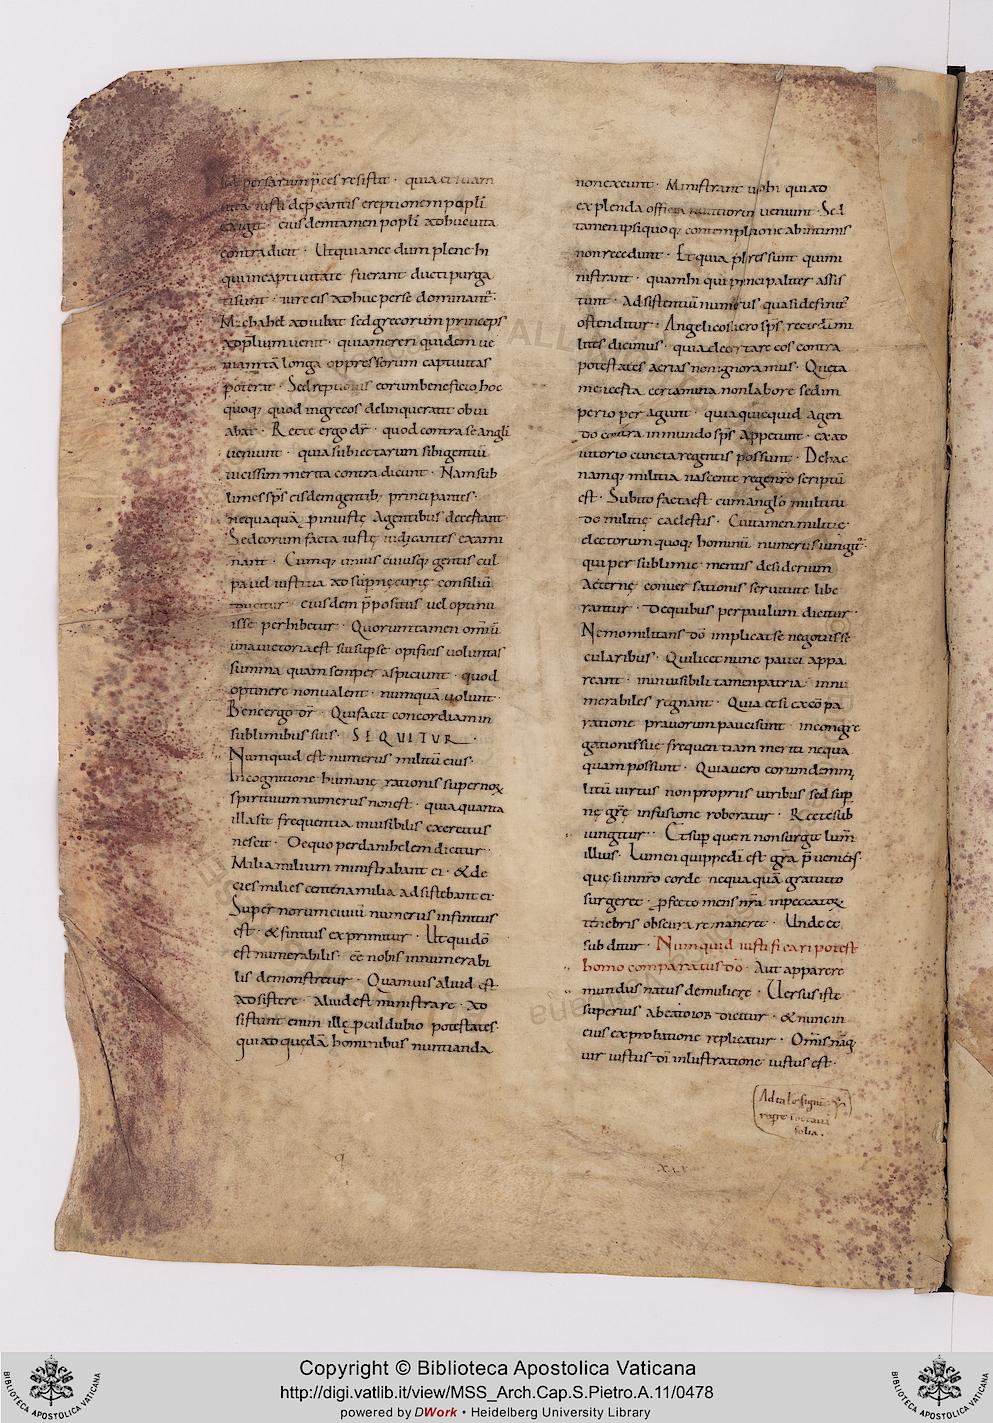 persarum p̄ces resistit · quia et tuam
uita iusti dep̄cantis ereptionem popli
exigit · eiusdem tamen popli adhuc uita
contradicit · Ut quia necdum plene hi
qui in captiuitate fuerant ducti purga
ti sunt · iure eis adhuc per se dominant̄ ·
Michahel adiubat sed grecorum princeps
ad p̄lium uenit · quia mereri quidem ue
niam tā longa oppressorum captiuitas
poterat · Sed eorum beneficio hoc
quoq; quod in grecos delinquerant obui
abat · Recte ergo dr̄ · quod contra se angli
ueniunt · quia subiectarum sibi gentiū
uicissim merita contradicunt · Nam sub
limes sp̄s eisdem gentib; principantes ·
nequaquā p̄ iniuste agentibus decertant ·
Sed eorum facta iustę iudicantes exami
nant · Cumq; unius cuiusq; gentis cul
pa uel iustitia ad sup̄nę curię consiliū
ducitur eiusdem p̄positus uel optinu
isse perhibetur · Quorum tamen omiū
una uictoria est sui sup se opificis uoluntas
summa quam semper aspiciunt · quod
optinere non ualent · numquā uolunt ·
Bene ergo dr̄ · Qui facit concordiam in
sublimibus suis · SEQUITVR ·
Numquid est numerus militū eius ·
In cognitione humanę rationis supernoꝝ
spirituum numerus non est · quia quanta
illa sit frequentia inuisibilis exercitus
nescit · De quo per danihelem dicitur ·
Milia milium ministrabant ei · & de
cies milies centena milia adsistebant ei ·
Supernorum ciuiū numerus infinitus
est · & finitus exprimitur · Ut qui dō
est numerabilis · ee nobis innumerabi
lis demonstretur · Quamuis aliud est
adsistere · aliud est ministrare · Ad
sistunt enim illę p̄culdubio potestates ·
qui ad quędā hominibus nuntianda
non exeunt · Ministrant u hi qui ad
explenda officia nuntiorū ueniunt · Sed
tamen ipsi quoq; contemplatione ab intimis
non recedunt · Et quia plres sunt qui mi
nistrant · quam hi qui principaliter assis
tunt · Adsistentiū numerus quasi definit̄
ostenditur · Angelicos uero sp̄s recte dī mi
lites dicimus · quia decertare eos contra
potestates aerias non ignoramus · Quęta
men certa certamina non labore sed im
perio peragunt · quia quicquid agen
do contra inmundo sp̄s appetunt · ex ad
iutorio cuncta regentis possunt · De hac
namq; militia nascente rege nr̄o scriptū
est · Subito facta est cum anglo multitu
do militię caelestis · Cui tamen militię ·
electorum quoq; hominū numerus iungit̄ ·
qui per sublimię mentis desiderium
a eternę conuersationis seruitute libe
rantur · De quibus per paulum dicitur ·
Nemo militans dō implicat se negotiis se
cularibus · Qui licet nunc pauci appa
reant · in inuisibili tamen patria innu
merabiles regnant · Quia etsi ex cōpa
ratione prauorum pauci sunt · in congre
gationis suę frequentiam metiri nequa
quam possunt · Quia uero eorumdem mi
litū uirtus non propriis uiribus sed sup̄
nę gr̄ę infusione roboratur · Recte sub
iungitur · Et sup quem non surgit lum̄
illius · Lumen quippe dī est gr̄a p̄ueniens ·
quę si in nr̄o corde nequaquā gratuito
surgeret · p̄fecto mens nr̄a in peccatoꝝ
tenebris obscura remaneret · Unde et
subditur · Numquid iustificari potest
homo comparatus dō · Aut apparere
mundus natus de muliere · Uersus iste
superius a beato iob dicitur · & nunc in
eius exprobatione replicatur · Om̄is nāq;
uir iustus dī inlustratione iustus est ·
Ad tale signū
folia ·
Copyright © Biblioteca Apostolica Vaticana
http://digi.vatlib.it/view/MSS_Arch.Cap.S.Pietro.A.11/0478
powered by DWork • Heidelberg University Library
BIBLIOTECA APOSTOLICA VATICANA
BIBLIOTECA APOSTOLICA VATICANA